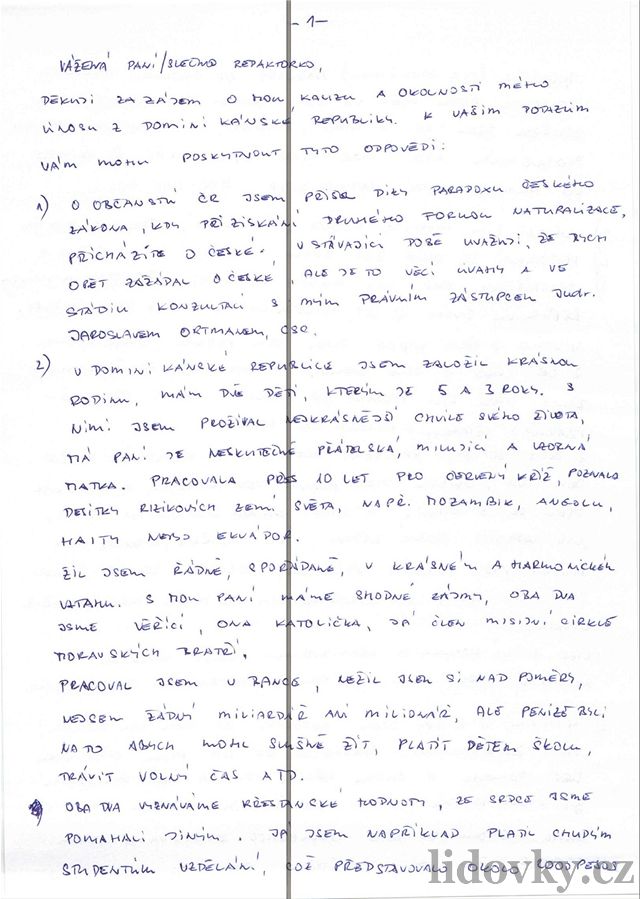 - 1 -
VÁŽENÁ PANÍ/SLEČNO REDAKTORKO,
DĚKUJI ZA ZÁJEM O MOU KAUZU A OKOLNOSTI MÉHO
ÚNOSU Z DOMINIKÁNSKÉ REPUBLIKY. K VAŠIM DOTAZŮM
VÁM MOHU POSKYTNOUT TYTO ODPOVĚDI:
1) O OBČANSTVÍ ČR JSEM PŘIŠEL DÍKY PARADOXU ČESKÉHO
ZÁKONA, KDY PŘI ZÍSKÁNÍ DRUHÉHO FORMOU NATURALIZACE,
PŘICHÁZÍTE O ČESKÉ. V STÁVAJÍCÍ DOBĚ UVAŽUJI, ŽE BYCH
OPĚT ZAŽÁDAL O ČESKÉ, ALE JE TO VĚCÍ ÚVAHY A VE
STÁDIU KONZULTACÍ S MÝM PRÁVNÍM ZÁSTUPCEM JUDr.
JAROSLAVEM ORTMANEM, CSC.
2) V DOMINIKÁNSKÉ REPUBLICE JSEM ZALOŽIL KRÁSNOU
RODINU, MÁM DVĚ DĚTI, KTERÝM JE 5 A 3 ROKY. S
NIMI JSEM PROŽÍVAL NEJKRÁSNĚJŠÍ CHVÍLE SVÉHO ŽIVOTA,
MÁ PANÍ JE NESKUTEČNĚ PŘÁTELSKÁ, MILUJÍCÍ A VZORNÁ
MATKA. PRACOVALA PŘES 10 LET PRO ČERVENÝ KŘÍŽ, POZNALA
DESÍTKY RIZIKOVÝCH ZEMÍ SVĚTA, NAPŘ. MOZAMBIK, ANGOLU,
HAITY NEBO EKVÁDOR.
ŽIL JSEM ŘÁDNĚ, SPOŘÁDANĚ, V KRÁSNÉM A HARMONICKÉM
VZTAHU. S MOU PANÍ MÁME SHODNÉ ZÁJMY, OBA DVA
JSME VĚŘÍCÍ, ONA KATOLIČKA, JÁ ČLEN MISIJNÍ CÍRKVE
MORAVSKÝCH BRATŘÍ.
PRACOVAL JSEM V BANCE, NEŽIL JSEM SI NAD POMĚRY,
NEJSEM ŽÁDNÝ MILIARDÁŘ ANI MILIONÁŘ, ALE PENÍZE BYLI
NA TO ABYCH MOHL SLUŠNĚ ŽÍT, PLATIT DĚTEM ŠKOLU,
TRÁVIT VOLNÝ ČAS ATD.
OBA DVA VYZNÁVÁME KŘESŤANSKÉ HODNOTY, ZE SRDCE JSME
POMAHALI JINÝM. JÁ JSEM NAPŘÍKLAD PLATIL CHUDÝM
STUDENTŮM VZDĚLÁNÍ, COŽ PŘEDSTAVOVALO OKOLO PESOS
lidovky.cz